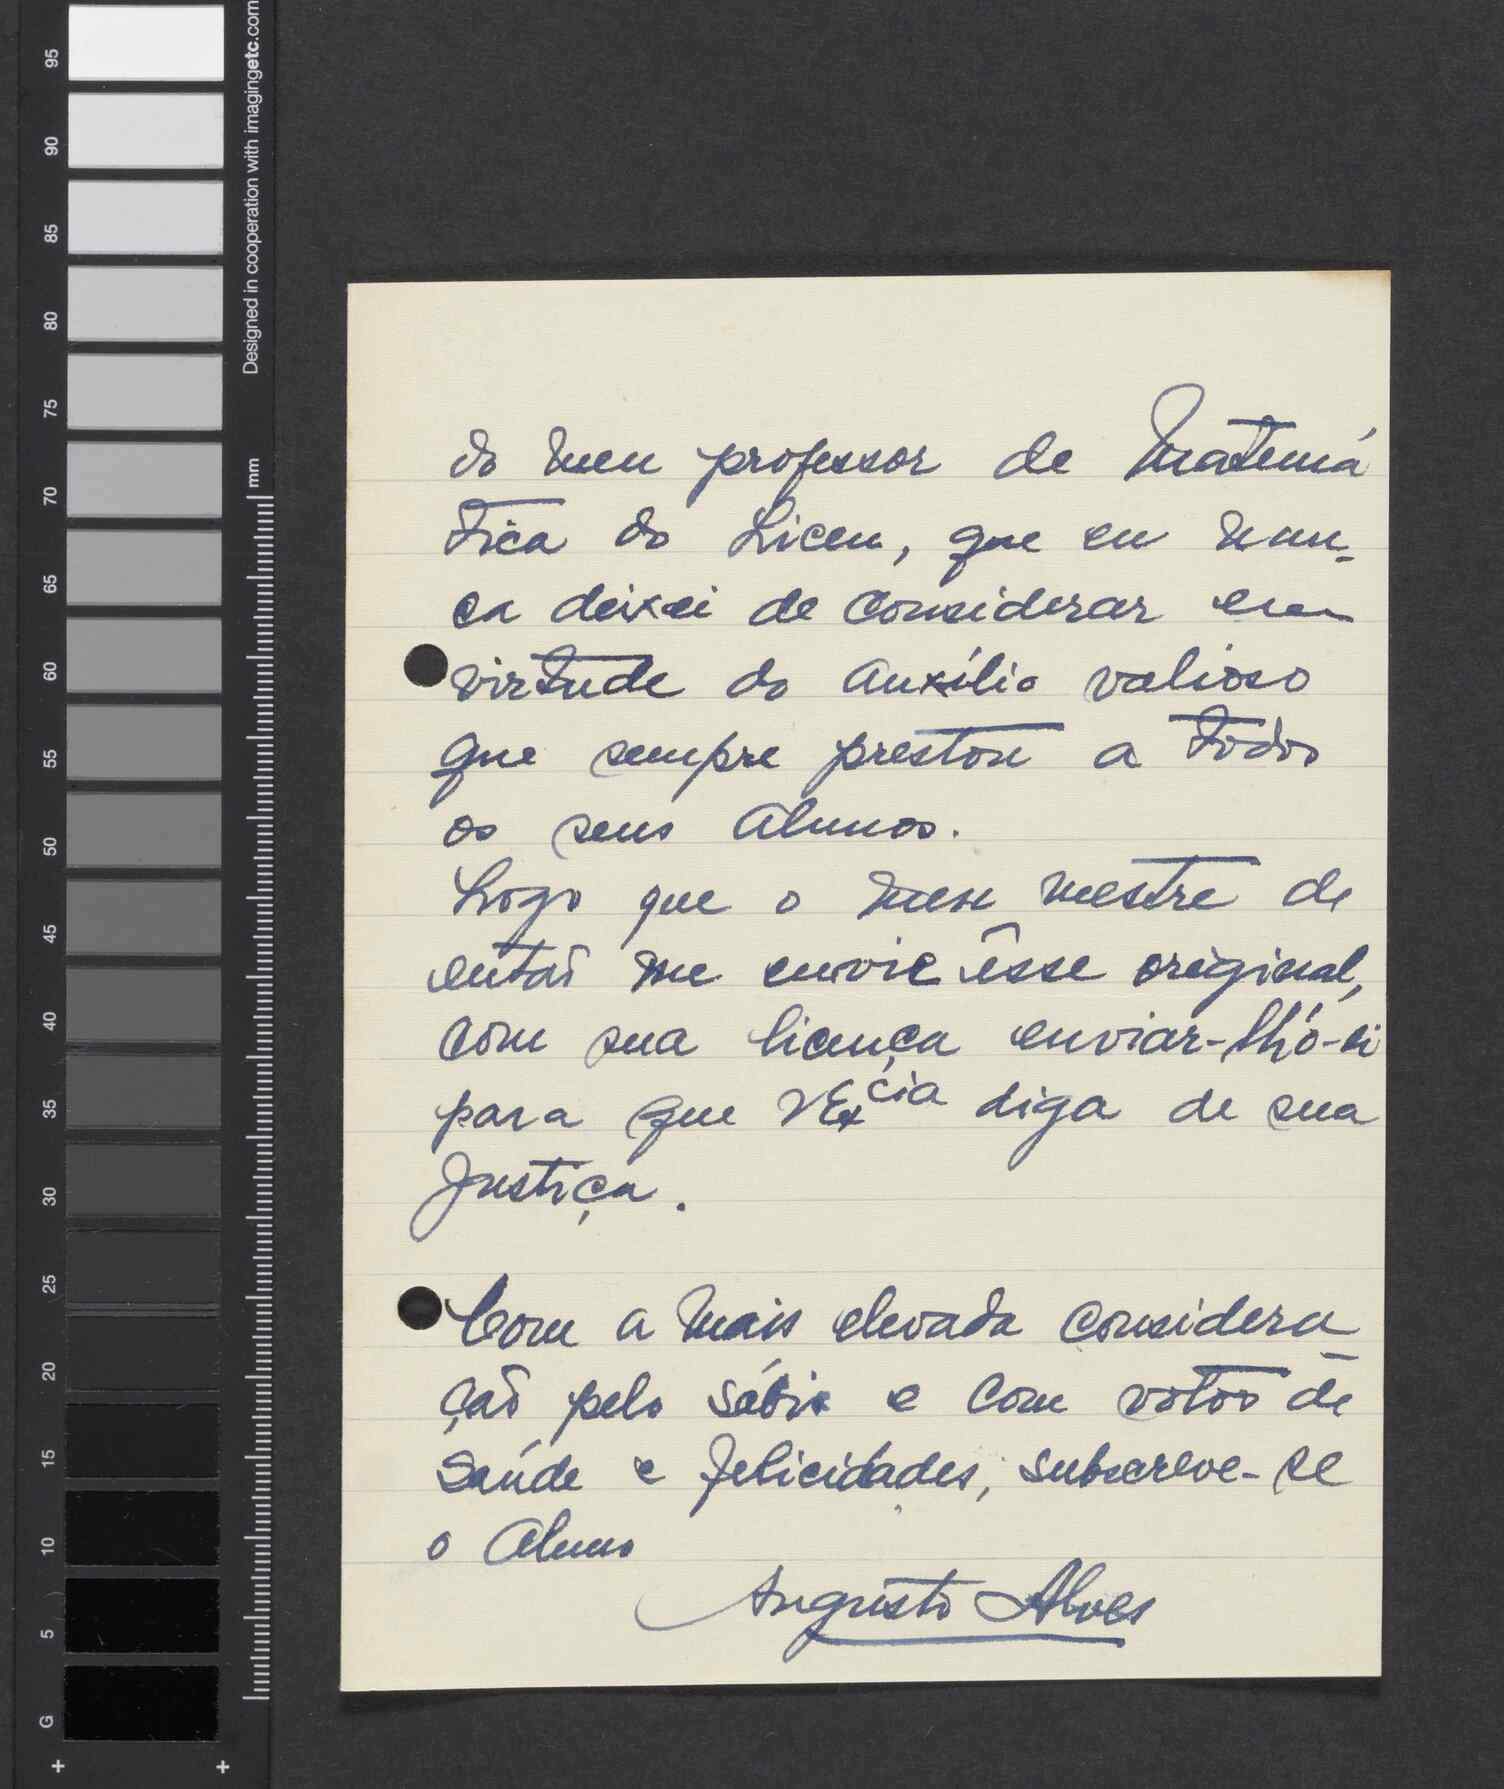 do meu professor de Matemá
tica do Liceu, que eu nun-
ca deixei de considerar em
virtude do auxílio valioso
que sempre prestou a todos
os seus alunos.
Logo que o meu mestre de
então me envie êsse original,
com sua licença enviar-lhó-ei
para que VExcia diga de sua
justiça.
Com a mais elevada considera
ção pelo sábio e com votos de
saúde e felicidades, subscreve-se
o aluno
Augusto Alves
Designed in cooperation with imagingetc.com
mm
95
90
85
80
75
70
65
60
55
50
45
40
35
30
25
20
15
10
5
G